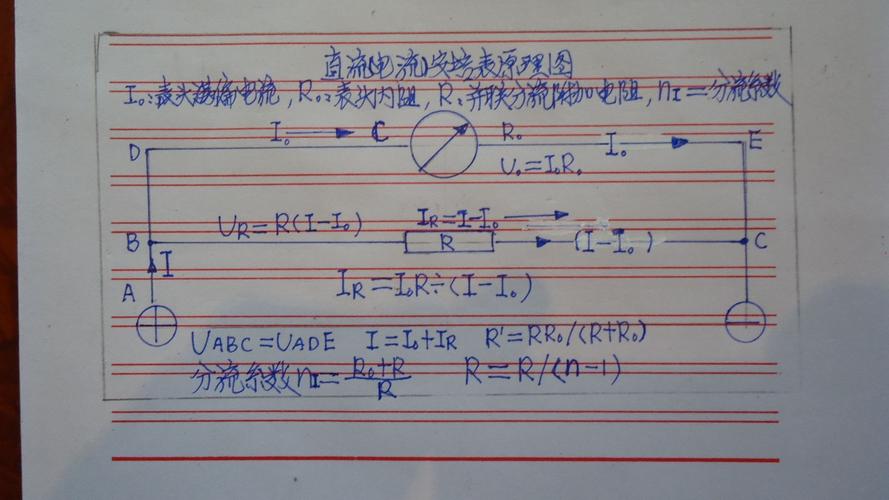 直流(电流)安培表原理图
I₀:表头满偏电流,R₀:表头内阻,R:并联分流附加电阻,nI=分流系数
D I₀ C R₀ I₀ E
U₀=I₀R₀
UR=R(I-I₀) IR=I-I₀
B R (I-I₀) C
I
A IR=I₀R÷(I-I₀)
UABC=UADE I=I₀+IR R'=RR₀/(R+R₀)
分流系数nI=R₀+R/R R=R/(n-1)